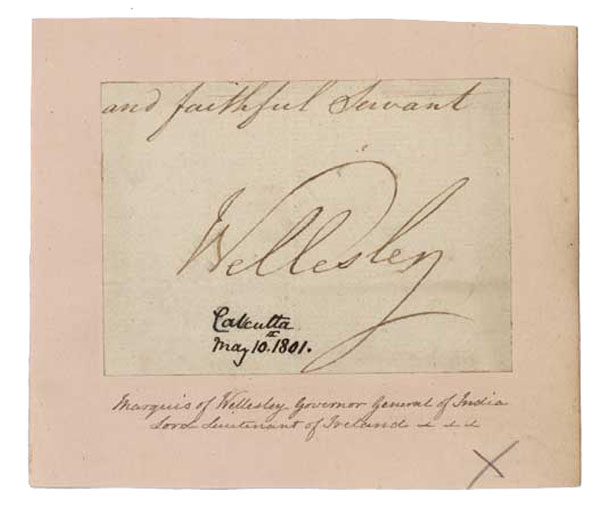 and faithful Servant
Wellesley
Calcutta
May 10th. 1801.
Marquis of Wellesley Governor General of India
Lord Lieutenant of Ireland